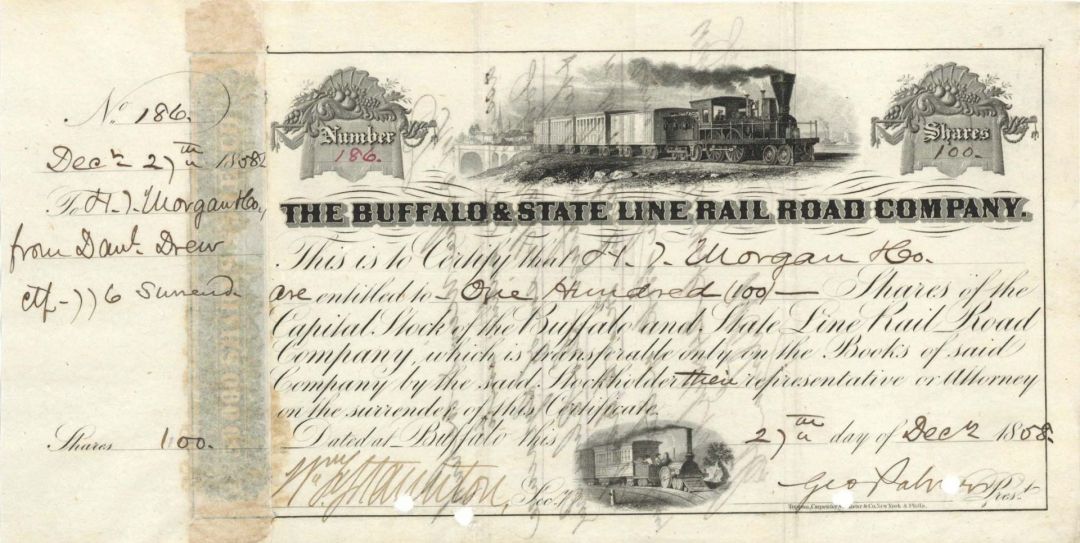 No. 186.
Decr 27th 1858
To H. T. Morgan & Co,
from Danl. Drew
ctf - 776 Surrend
Shares 100.
Number
186.
Shares
100.
THE BUFFALO & STATE LINE RAIL ROAD COMPANY.
This is to Certify that H. T. Morgan & Co.
are entitled to One Hundred (100) Shares of the
Capital Stock of the Buffalo and State Line Rail Road
Company, which is transferable only on the Books of said
Company by the said Stockholder their representative or Attorney
on the surrender of this Certificate.
Dated at Buffalo this 27th day of Decr 1858.
Secy.
Geo Palmer Prest
Toppan, Carpenter & Co, New York & Phila.